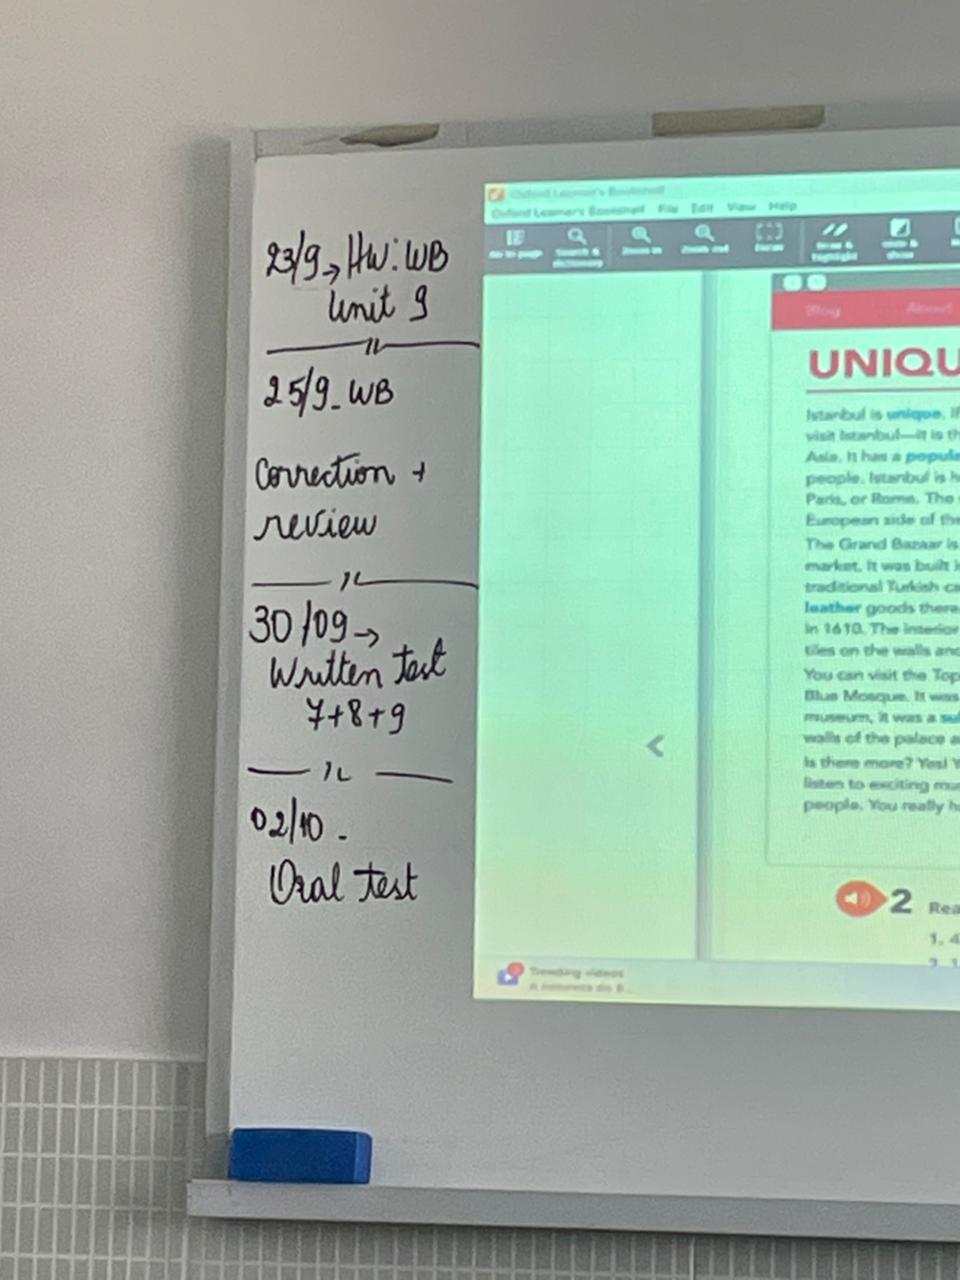 23/9→ HW: WB
Unit 9
25/9- WB
Correction +
review
30/09→
Written test
7+8+9
02/10-
Oral test
Oxford Learner's Bookshelf
Oxford Learner's Bookshelf File Edit View Help
Go to page Search & dictionary Zoom in Zoom out Focus Draw & highlight Hide & show
Blog About
UNIQU
Istanbul is unique. If
visit Istanbul—it is th
Asia. It has a popula
people. Istanbul is h
Paris, or Rome. The
European side of the
The Grand Bazaar is
market. It was built i
traditional Turkish ca
leather goods there
in 1610. The interior
tiles on the walls and
You can visit the Top
Blue Mosque. It was
museum, it was a sul
walls of the palace a
Is there more? Yes! Y
listen to exciting mus
people. You really ha
2 Rea
1. 4
2. 1
Trending videos
A natureza do